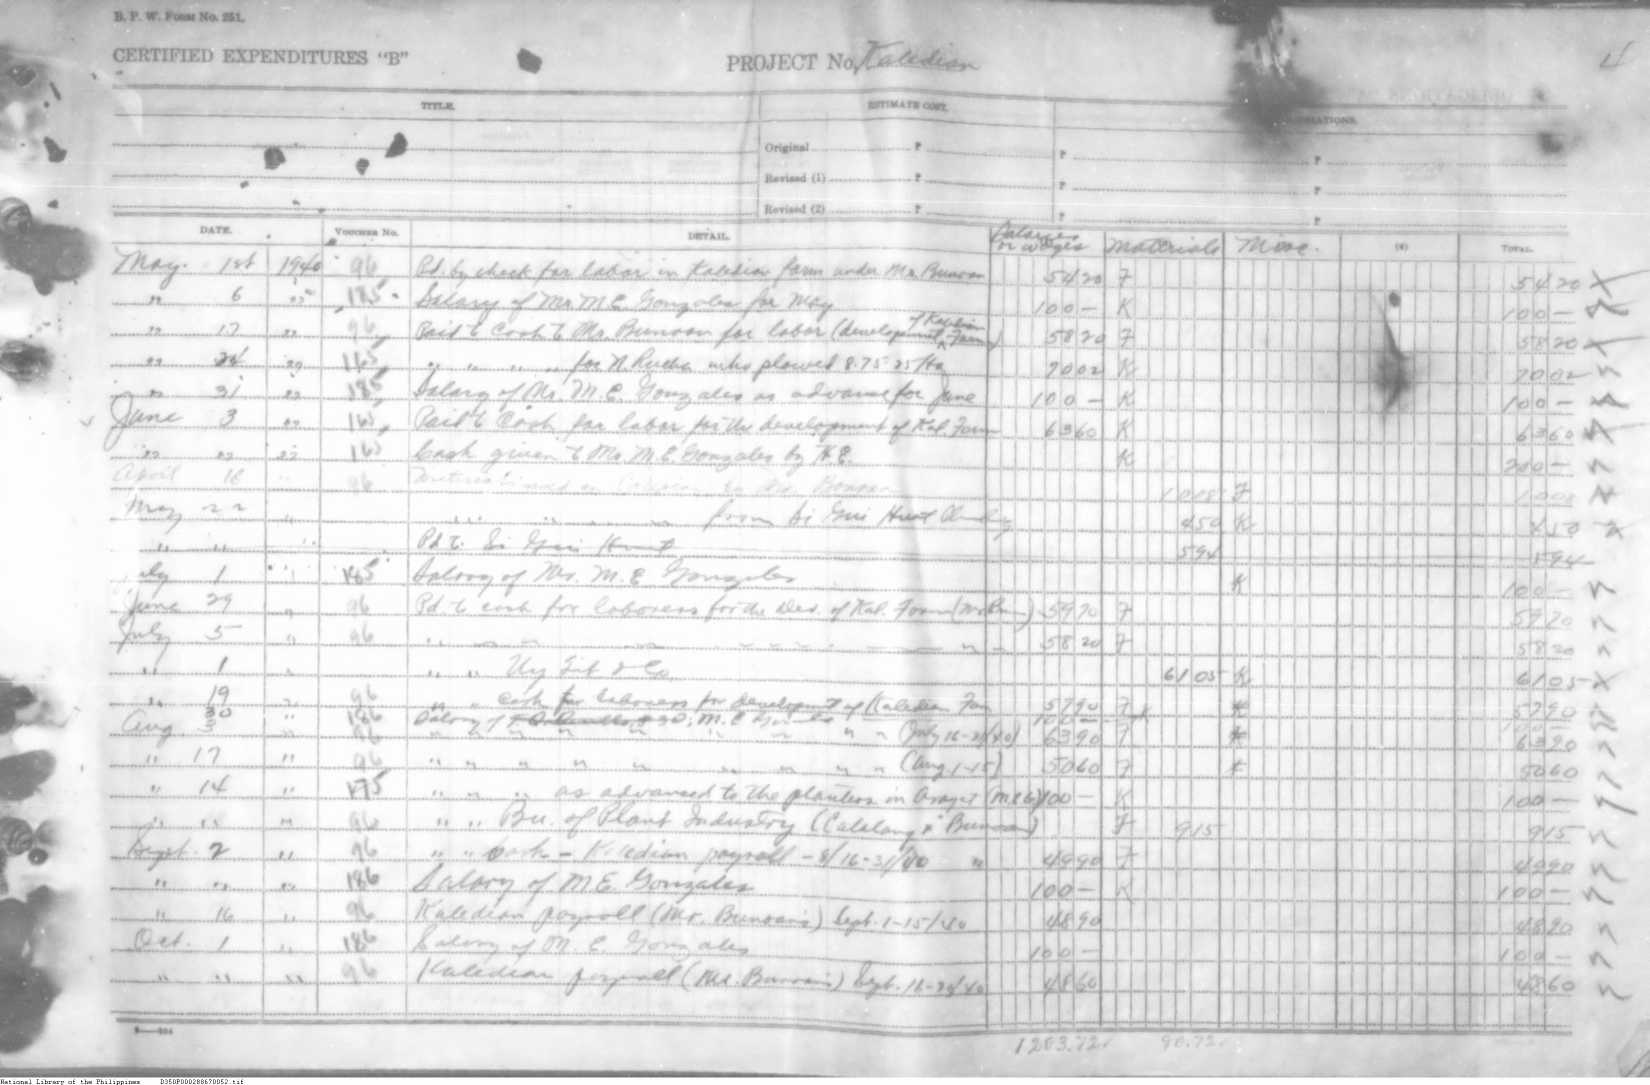 B. P. W. Form No. 251.
CERTIFIED EXPENDITURES "B"
PROJECT No. Kaledian
4
TITLE. ESTIMATE COST.
Original P P P
Revised (1) P P P
Revised (2) P P P
DATE. VOUCHER No. DETAIL. Salaries or wages Materials Misc. (4) TOTAL.
May. 1st 1940 96 Pd. by check for labor in Kaledian farm under Mr. Bunoan 5420 F 5420
" 6 " 185 Salary of Mr. M. E. Gonzales for May 100 — K 100 —
" 17 " 96 Paid to Cash to Mr. Bunoan for labor (development of Kaledian Farm) 5820 F 5820
" 24 " 165 " " " " for N. who plowed 8.75 25/Ha 7002 K 7002
" 31 " 185 Salary of Mr. M. E. Gonzales as advance for June 100 — K 100 —
June 3 " 165 Paid to Cash for labor for the development of Kal. Farm 6360 K 6360
" " " 165 Cash given to Mr. M. E. Gonzales by H.E. K 200 —
April 18 " 96 1008 F 1008
May 22 " " " " from Si Gui Hunt 450 K 450
" " " Pd to Si Gui Hunt 594 594
July 1 " 185 Salary of Mr. M. E. Gonzales K 100 —
June 29 " 96 Pd. to cash for laborers for the Dev. of Kal. Farm 5970 F 5970
July 5 " 96 " 5820 F 5820
" 1 " " " Uy Tit & Co. 6105 K 6105
" 19 " 96 " " cash for laborers for development of Kaledian Farm 5790 F 5790
" 30 " 186 Salary of M. E. Gonzales 100 — K 100 —
Aug. 3 " 96 " " " " " " " " (July 16-31/40) 6390 F 6390
" 17 " 96 " " " " " " " " " (Aug. 1-15) 5060 F 5060
" 14 " 175 " " " as advanced to the planters in (M.E.G.) 100 — K 100 —
" " " 96 " " Bu. of Plant Industry (Catalang & Bunoan) F 915 915
Sept. 2 " 96 " " cash - Kaledian payroll - 8/16-31/40 " 4990 F 4990
" " " 186 Salary of M. E. Gonzales 100 — K 100 —
" 16 " 96 Kaledian payroll (Mr. Bunoan's) Sept. 1-15/40 4890 4890
Oct. 1 " 186 Salary of M. E. Gonzales 100 — 100 —
" " " 96 Kaledian payroll (Mr. Bunoan's) Sept. 16-29/40 4860 4860
1203.72 90.72
National Library of the Philippines D350P000288670052.tif